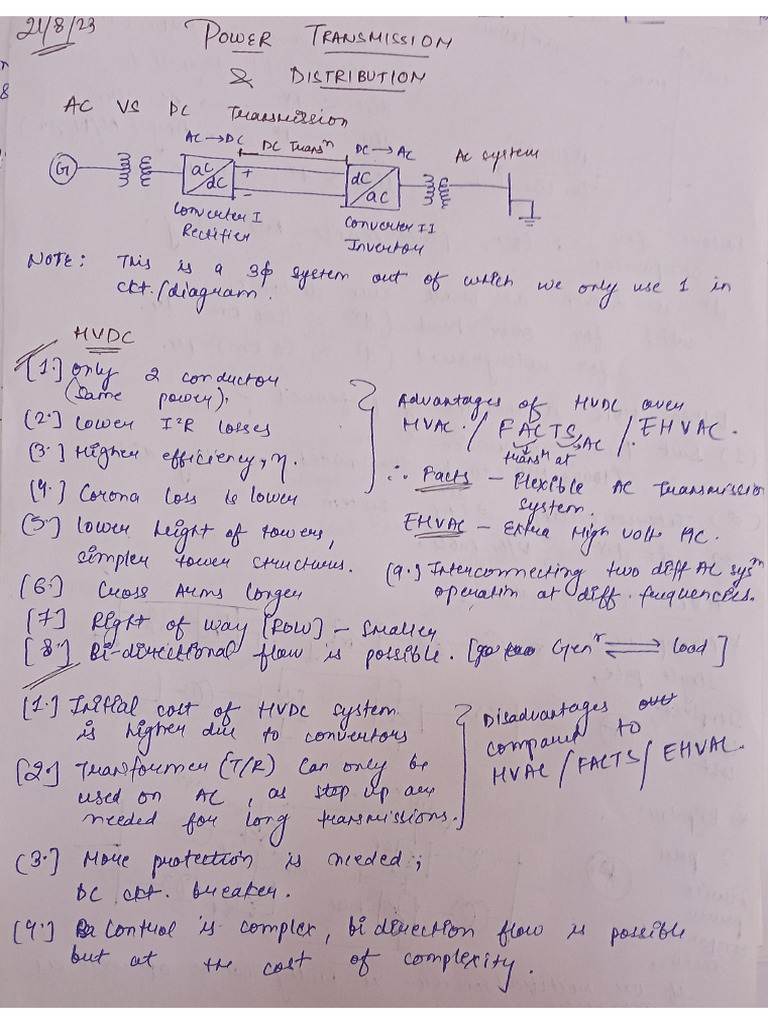 21/8/23
POWER TRANSMISSION
& DISTRIBUTION
AC VS DC Transmission
AC → DC
DC Transⁿ
DC → AC
AC system
G
ac/dc
+
-
dc/ac
Converter I
Rectifier
Converter II
Invertor
NOTE: This is a 3φ system out of which we only use 1 in
ckt./diagram.
HVDC
[1.] Only 2 conductor
(same power).
(2.) Lower I²R losses
(3.) Higher efficiency, η.
(4.) Corona loss is lower
(5.) Lower height of towers,
simpler tower structures.
(6.) Cross Arms longer
[7] Right of way [ROW] - Smaller
[8.] Bi-directional flow is possible. [Genʳ ⇌ load]
Advantages of HVDC over
HVAC. / FACTS / EHVAC.
transⁿ at AC
∴ Facts - Flexible AC Transmission
system.
EHVAC - Extra High Volt AC.
(9.) Interconnecting two diff AC sysᵐ
operatin at diff. frequencies.
[1.] Initial cost of HVDC system
is higher due to convertors
[2.] Transformer (T/R) can only be
used on AC, as step up are
needed for long transmissions.
Disadvantages
compared to
HVAC / FACTS / EHVAC.
(3.) More protection is needed;
DC ckt. breaker.
(4.) Control is complex, bi direction flow is possible
but at the cost of complexity.